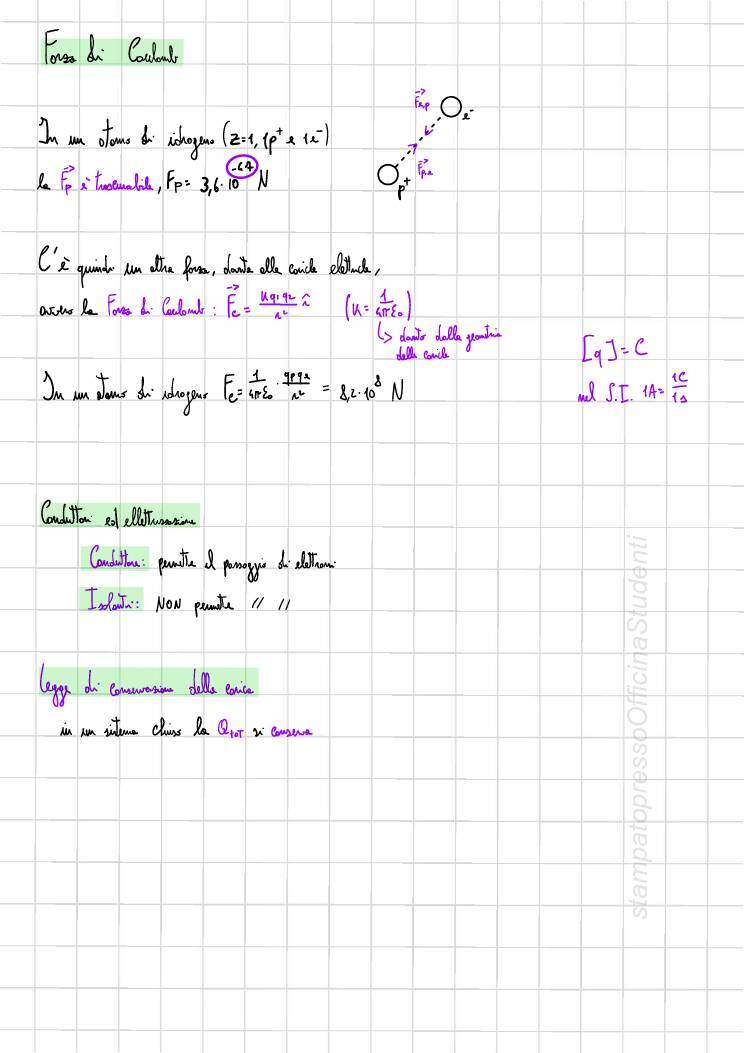 Forza di Coulomb
In un atomo di idrogeno (z=1, 1p⁺ e 1e⁻)
la F⃗p è trascurabile, Fp = 3,6·10⁻⁶⁴ N
F⃗e,p
e⁻
F⃗p,e
p⁺
C'è quindi un altra forza, dovuta alle cariche elettriche,
ovvero la Forza di Coulomb: F⃗c = Kq₁q₂/r² r̂ (K = 1/4πε₀)
↳ dovuto dalla geometria
delle cariche
[q] = C
nel S.I. 1A = 1C/1s
In un atomo di idrogeno Fc = 1/4πε₀ · qpqe/r² = 8,2·10⁸ N
Conduttori ed elletrizzazione
Conduttore: permette il passaggio di elettroni
Isolanti: NON permette // //
Legge di conservazione della carica
in un sistema chiuso la QTOT si conserva
stampatopressoOfficinaStudenti